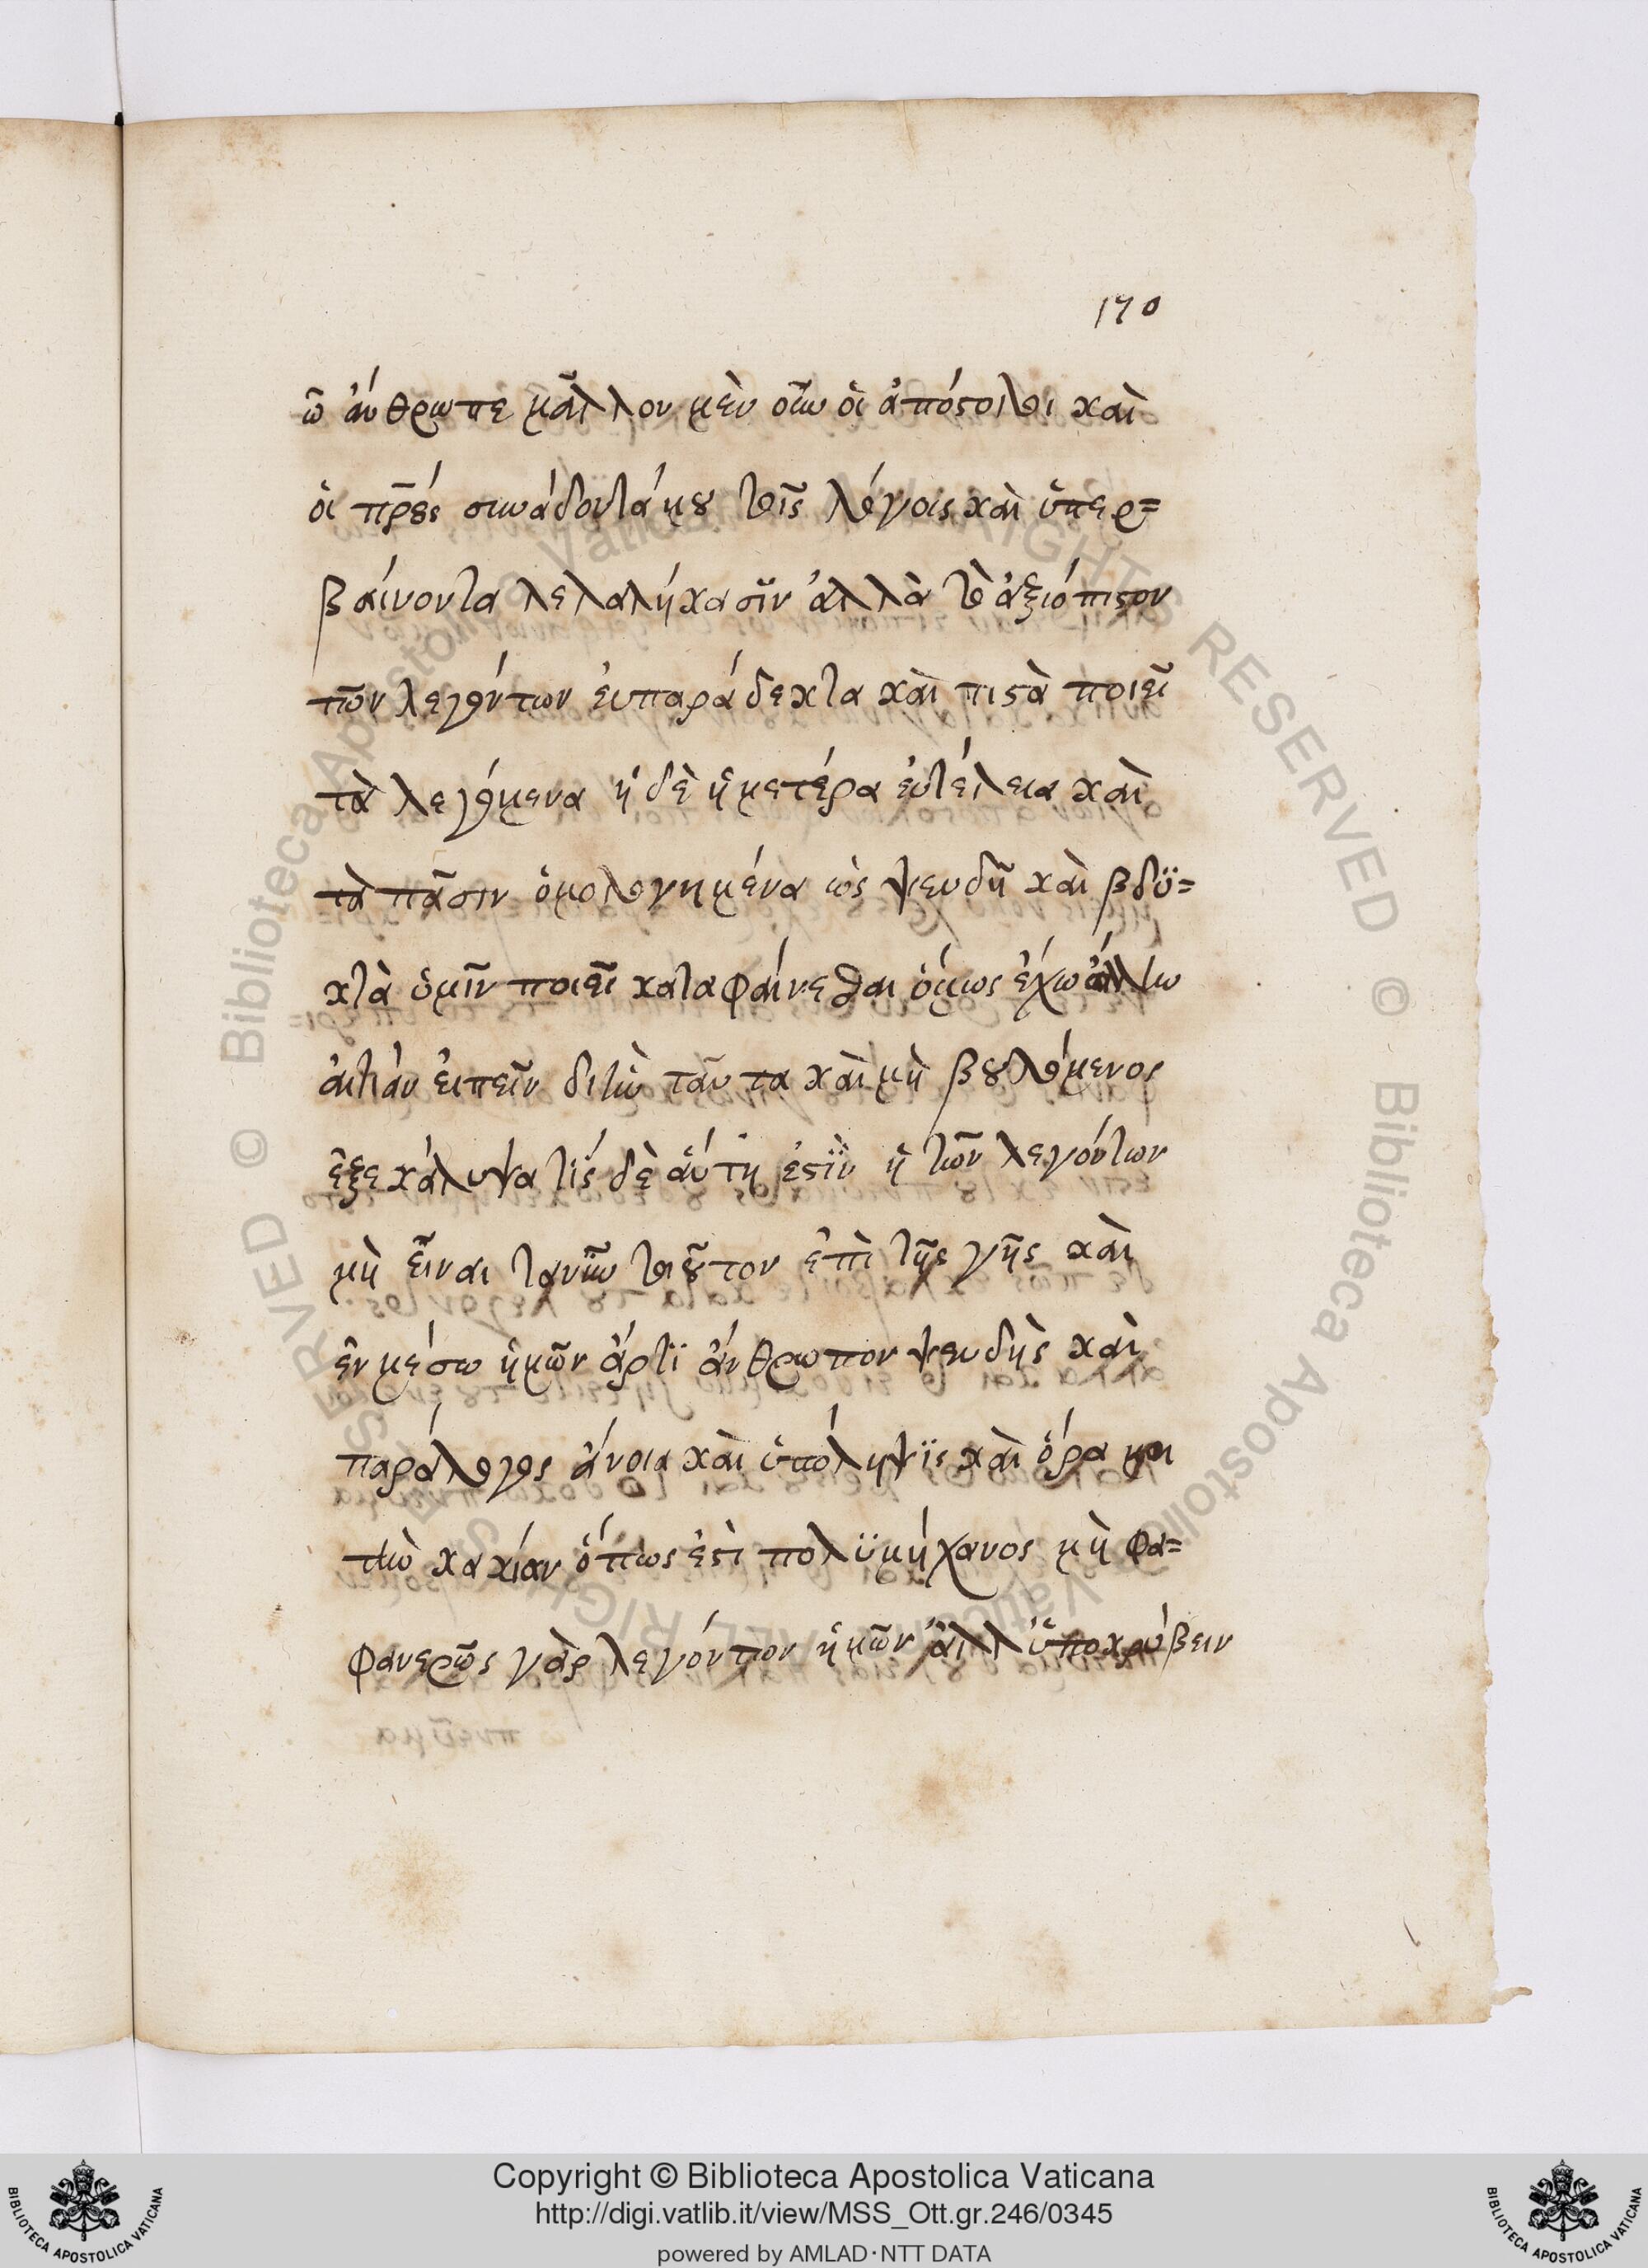 170
ὦ ἄνθρωπε μᾶλλον μὲν οὖν οἱ ἀπόστολοι καὶ
οἱ πρ̅ες συνάδοντά μου τοῖς λόγοις καὶ ὑπερ=
βαίνοντα λελαλήκασϊν ἀλλὰ τὸ ἀξιόπιστον
τῶν λεγόντων ἐυπαράδεκτα καὶ πιστὰ ποιεῖ
τὰ λεγόμενα ἡ δὲ ἡμετέρα ἐυτέλεια καὶ
τὰ πᾶσιν ὁμολογημένα ὡς ψευδῆ καὶ βδϋ=
κτὰ ὑμῖν ποιεῖ καταφαίνεσθαι ὅμως ἔχω ἄλλην
ἀιτίαν ἐιπεῖν δι ἣν ταῦτα καὶ μὴ βουλόμενος
ἐξεκάλυψα τίς δὲ ἅυτη ἐστϊν ἡ τῶν λεγόντων
μὴ εἶναι τανῦν τοιοῦτον ἐπὶ τῆς γῆς καὶ
ἐν μέσω ἡμῶν ἄρτϊ ἄνθρωπον ψευδὴς καὶ
παράλογος ἄνοια καὶ ὑπόληψϊς καὶ ὅρα μοι
τὴν κακίαν ὅπως ἐστὶ πολϋμήχανος μὴ φα=
φανερῶς γὰρ λεγόντον ἡμῶν ἀλλ ὑποκρύβειν
Copyright © Biblioteca Apostolica Vaticana
http://digi.vatlib.it/view/MSS_Ott.gr.246/0345
powered by AMLAD·NTT DATA
BIBLIOTECA APOSTOLICA VATICANA
BIBLIOTECA APOSTOLICA VATICANA